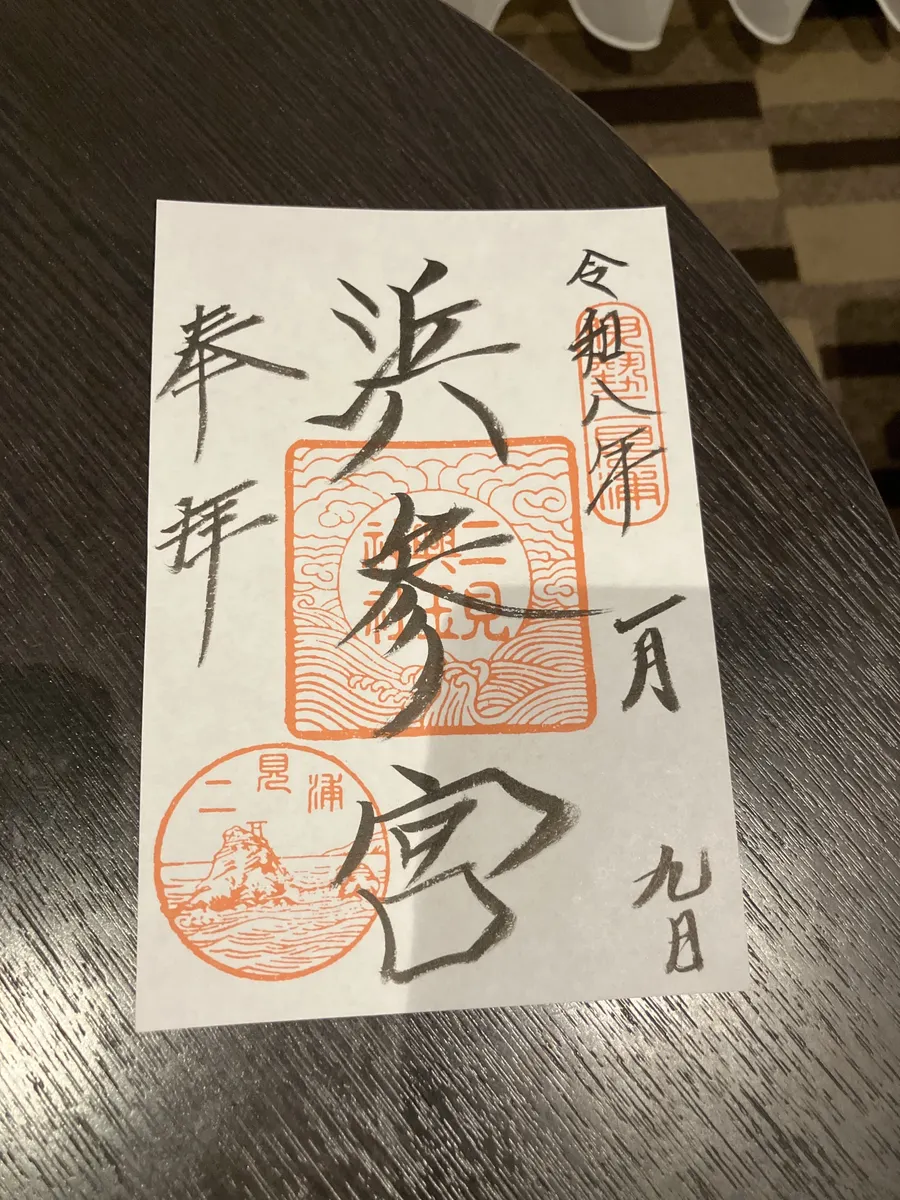 令和八年
一月
九日
伊勢二見浦
浜参宮
二見
興玉
神社
奉拝
二見浦